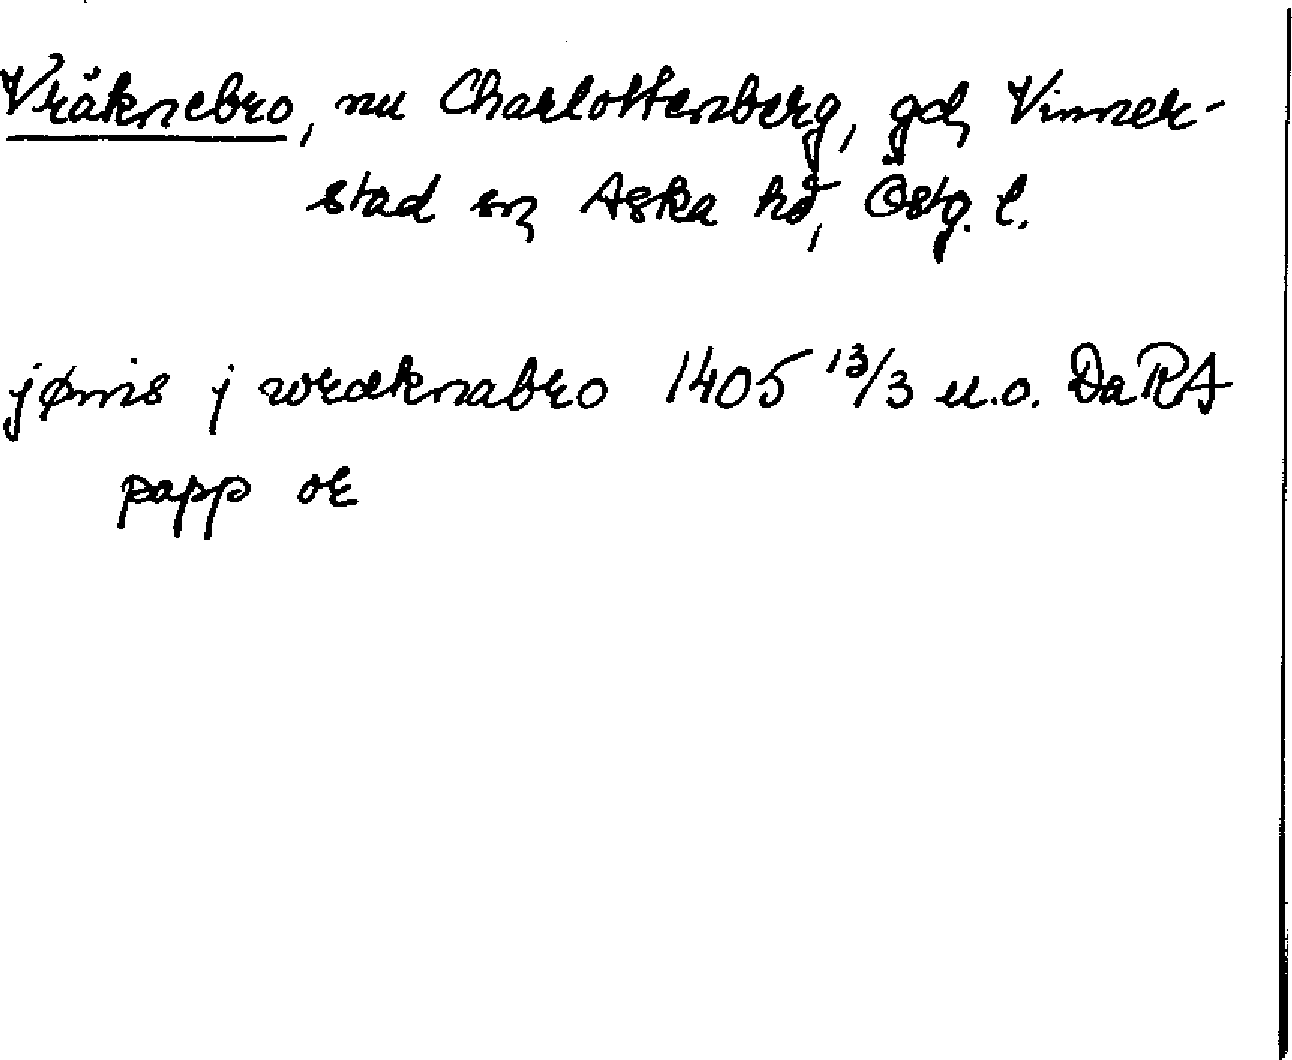 Vräknebro, nu Charlottenberg, gd, Vinner-
stad sn, Aska hd, Östg. l.
jønis j wræknabro 1405 13/3 u.o. DaRA
papp or